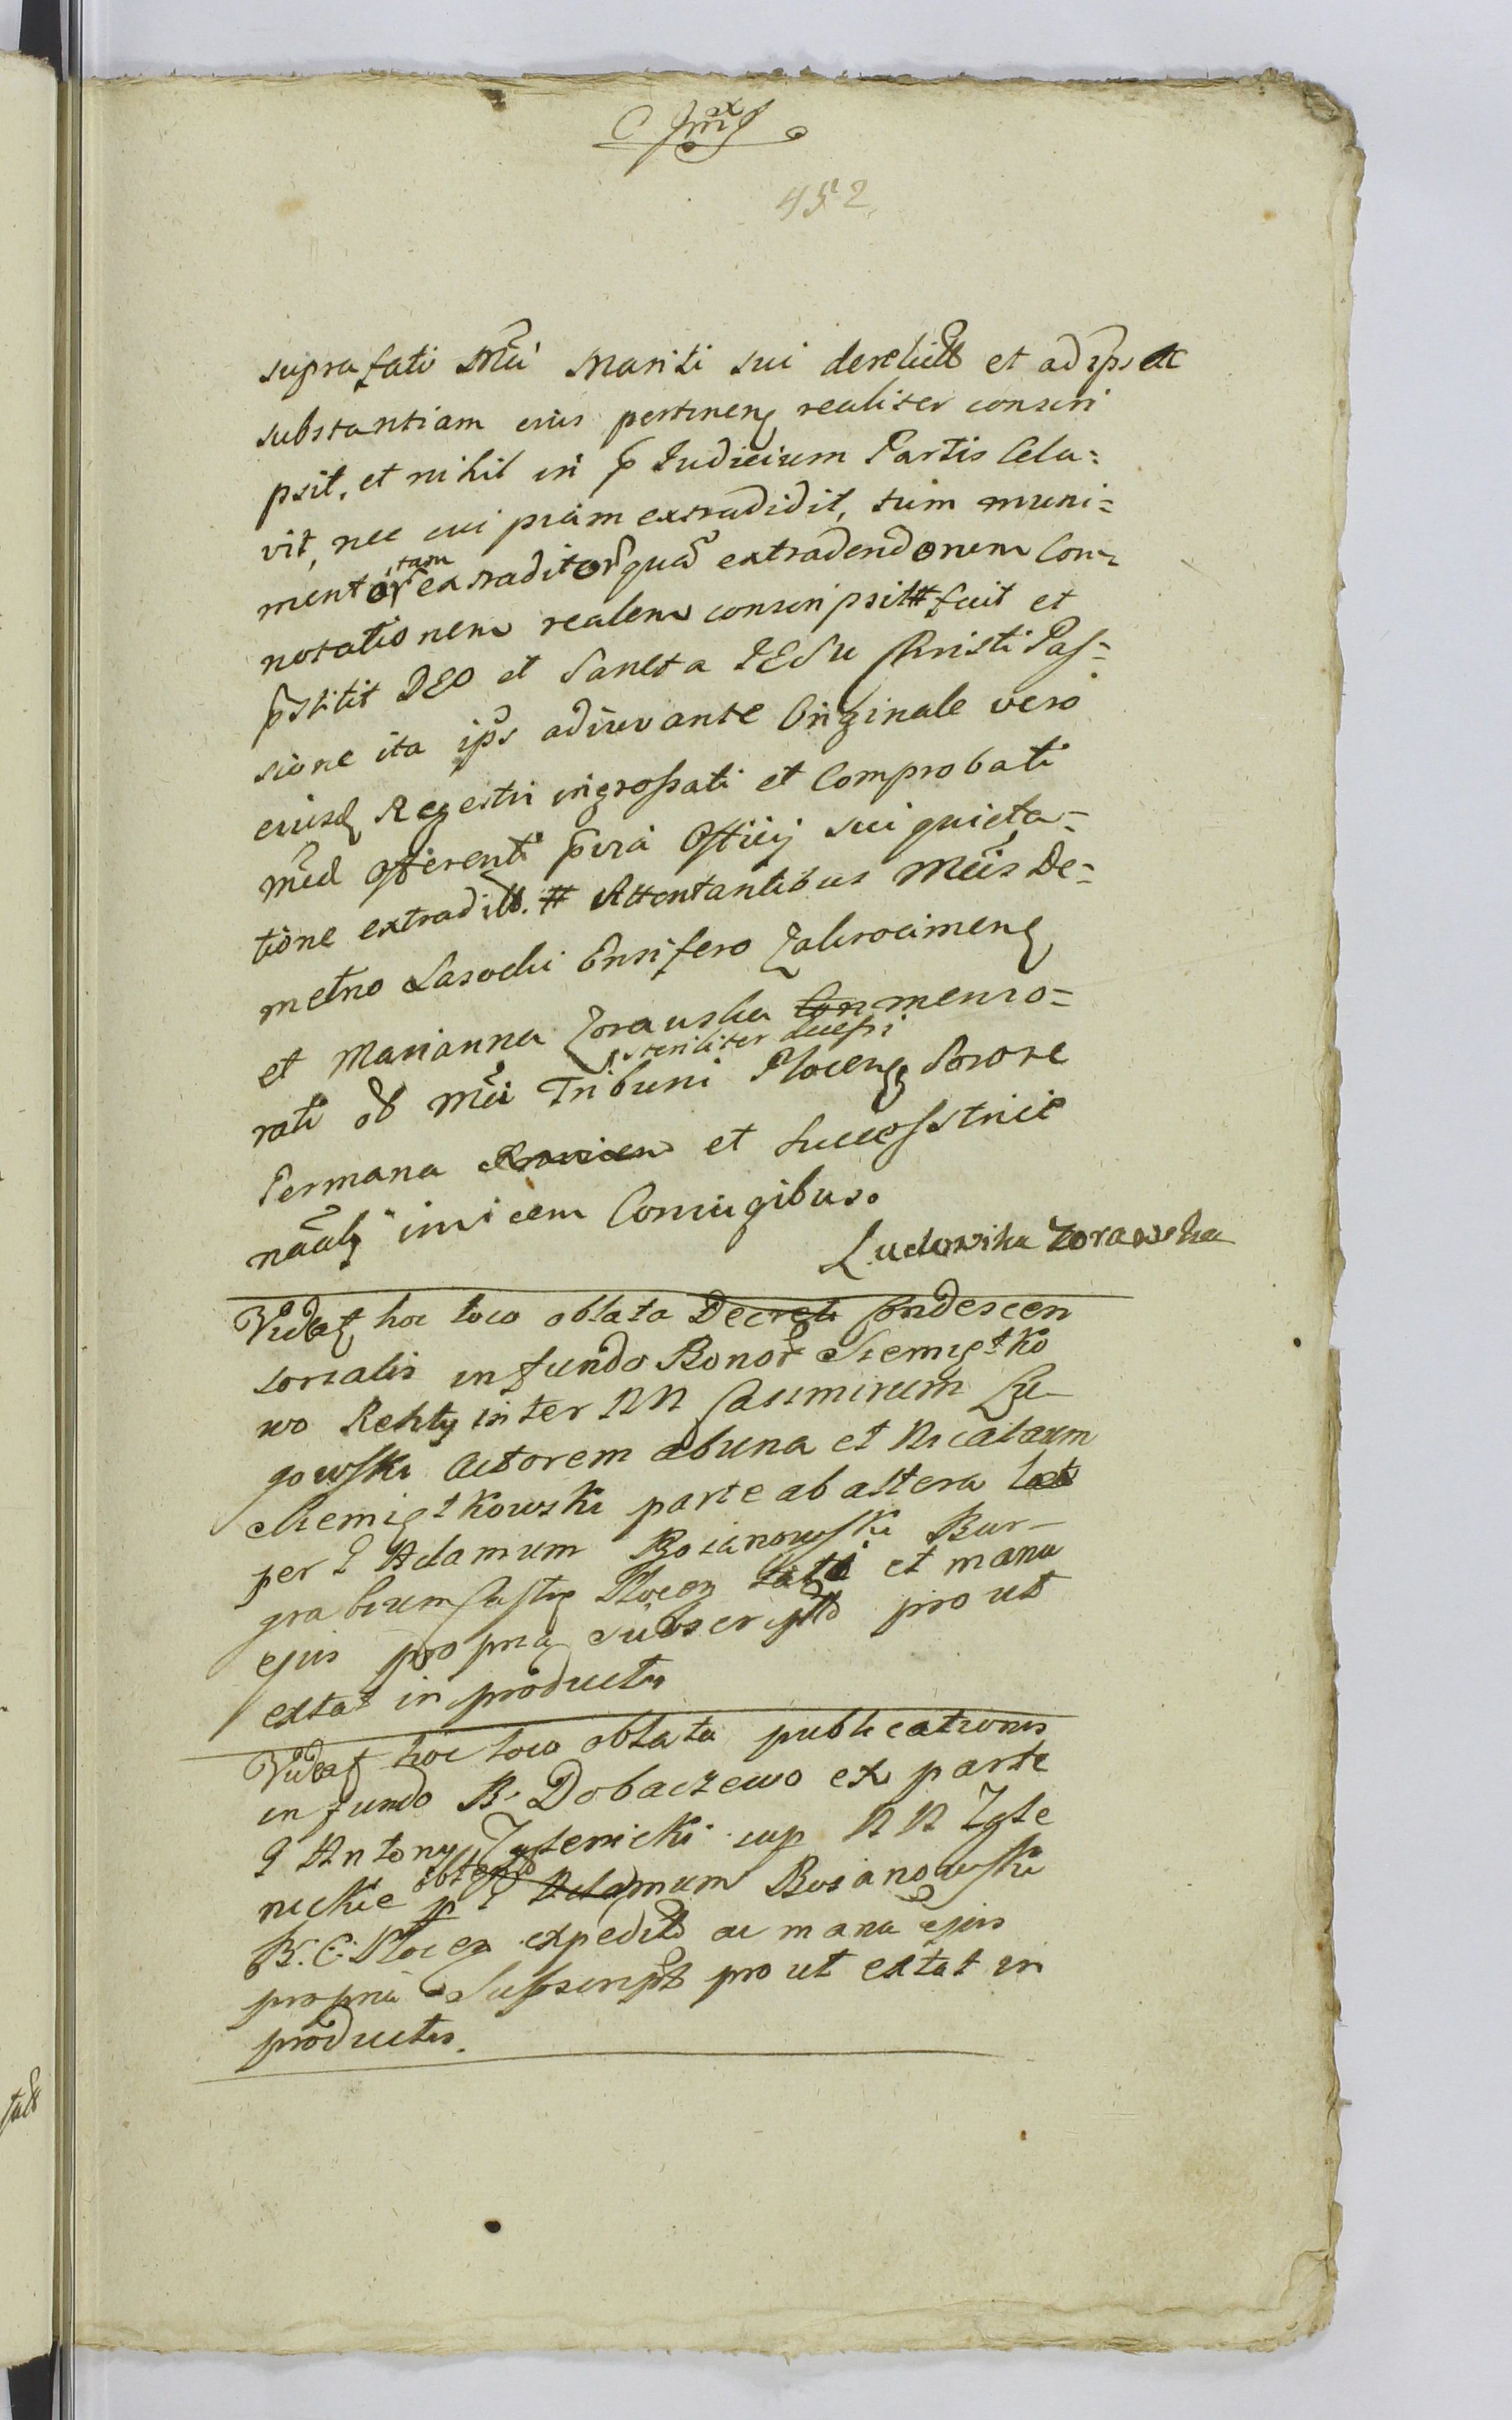 452
suprafati Mci Mariti sui derelict et ad ips
substantiam eius pertinen realiter conscri
psit, et nihil in p Iudicium Partis Cela=
vit, nec cui piam extradidit, tum muni=
mentor tam extraditor qua extradendorum Con=
notationem realem conscripsit # fuit et
pstitit DEO et Sancta IESu Christi Pas=
sione ita ips adiuvante Originale vero
eiusd Regestri ingrossati et Comprobati
med offerenti pvia Officij sui quieta=
tione extradit. # Attentantibus Mcis De=
metrio Lasocki Ensifero Zakrocimen
et Marianna Zorawska Con memo=
steriliter decessi
rati od Mci Tribuni Plocen Sorore
Germana et Successtrice
naali invicem Coniugibus.
Ludowika Zorawska
Videat hoc loco oblata Decreti Condescen
sorialis in fundo Bonor Siemiątko
wo Rehty inter NN Casimirum Łu-
gowski Actorem ab una et Nicolaum
Siemiątkowski parte ab altera
per G Adamum Bosianowski Bur-
grabium Castr Plocen lati et manu
ejus propria subscript prout
extat in productis
Videat hoc loco oblata publicationis
in fundo B. Dobaczewo ex parte
G Antony Zglenicki sup NN Zgle
nickie p G Adamum Bosianowski
B. C. Plocen expedit ac manu ejus
propria Subscript prout extat in
productis.